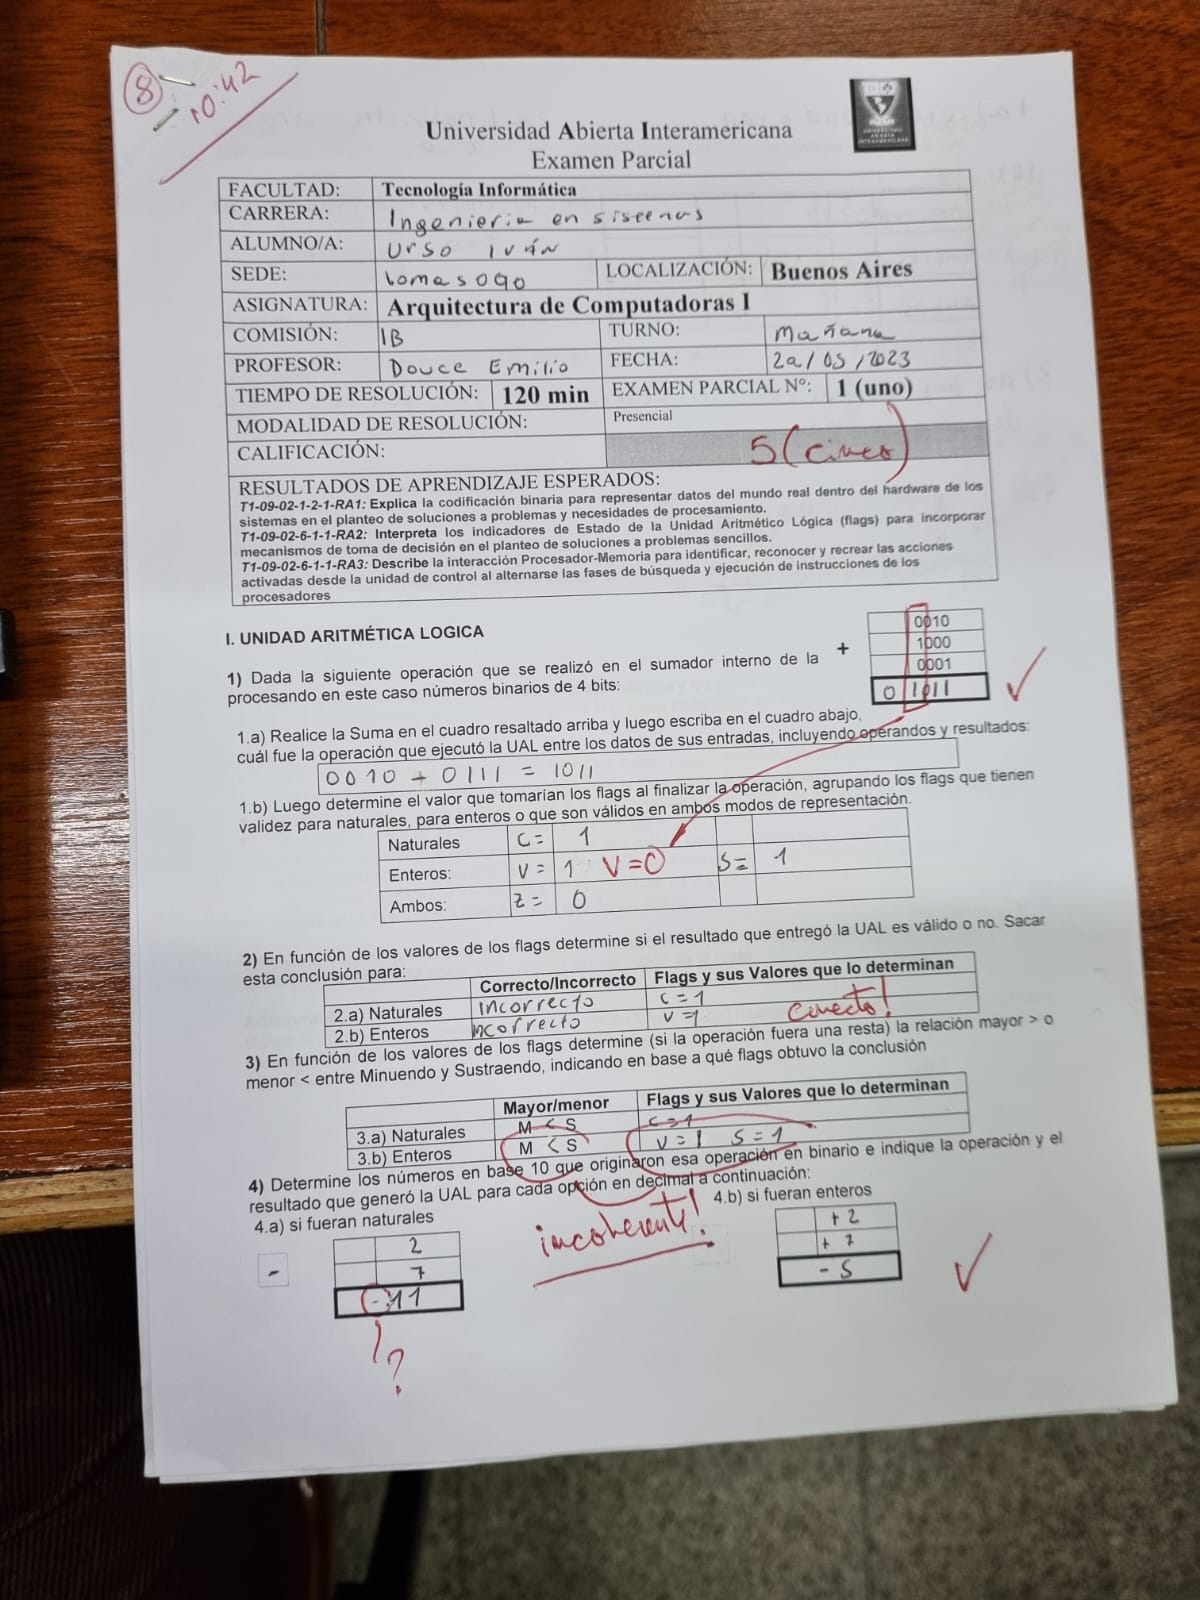 8
10:42
Universidad Abierta Interamericana
Examen Parcial
FACULTAD: Tecnología Informática
CARRERA: Ingenieria en sistemas
ALUMNO/A: Urso Iván
SEDE: Lomas LOCALIZACIÓN: Buenos Aires
ASIGNATURA: Arquitectura de Computadoras I
COMISIÓN: 1B TURNO: Mañana
PROFESOR: Douce Emilio FECHA: 2a/05/2023
TIEMPO DE RESOLUCIÓN: 120 min EXAMEN PARCIAL Nº: 1 (uno)
MODALIDAD DE RESOLUCIÓN: Presencial
CALIFICACIÓN: 5 (cinco)
RESULTADOS DE APRENDIZAJE ESPERADOS:
T1-09-02-1-2-1-RA1: Explica la codificación binaria para representar datos del mundo real dentro del hardware de los
sistemas en el planteo de soluciones a problemas y necesidades de procesamiento.
T1-09-02-6-1-1-RA2: Interpreta los indicadores de Estado de la Unidad Aritmético Lógica (flags) para incorporar
mecanismos de toma de decisión en el planteo de soluciones a problemas sencillos.
T1-09-02-6-1-1-RA3: Describe la interacción Procesador-Memoria para identificar, reconocer y recrear las acciones
activadas desde la unidad de control al alternarse las fases de búsqueda y ejecución de instrucciones de los
procesadores
I. UNIDAD ARITMÉTICA LOGICA
1) Dada la siguiente operación que se realizó en el sumador interno de la
procesando en este caso números binarios de 4 bits:
+ 0010
1000
0001
0 1011
1.a) Realice la Suma en el cuadro resaltado arriba y luego escriba en el cuadro abajo,
cuál fue la operación que ejecutó la UAL entre los datos de sus entradas, incluyendo operandos y resultados:
0010 + 0111 = 1011
1.b) Luego determine el valor que tomarían los flags al finalizar la operación, agrupando los flags que tienen
validez para naturales, para enteros o que son válidos en ambos modos de representación.
Naturales C= 1
Enteros: V= 1 V=0 S= 1
Ambos: Z= 0
2) En función de los valores de los flags determine si el resultado que entregó la UAL es válido o no. Sacar
esta conclusión para:
Correcto/Incorrecto Flags y sus Valores que lo determinan
2.a) Naturales Incorrecto C=1
2.b) Enteros Incorrecto V=1 Correcto!
3) En función de los valores de los flags determine (si la operación fuera una resta) la relación mayor > o
menor < entre Minuendo y Sustraendo, indicando en base a qué flags obtuvo la conclusión
Mayor/menor Flags y sus Valores que lo determinan
3.a) Naturales M < S C=1
3.b) Enteros M < S V=1 S=1
4) Determine los números en base 10 que originaron esa operación en binario e indique la operación y el
resultado que generó la UAL para cada opción en decimal a continuación:
4.a) si fueran naturales
incoherente!
4.b) si fueran enteros
- 2
7
-11
?
+2
+7
-5